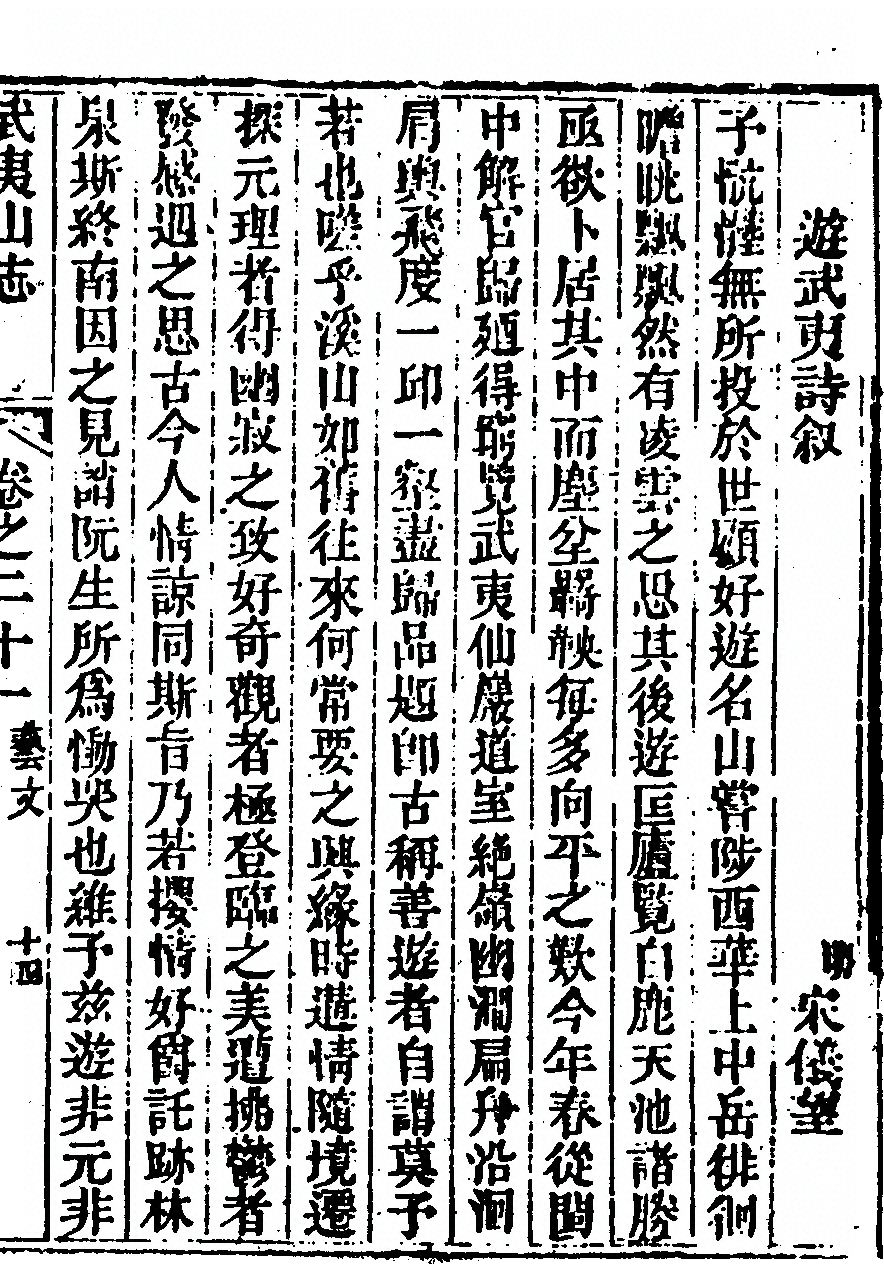 遊武夷詩叙　明宋儀望
予忼慷無所投於世顧好遊名山嘗陟西華上中岳徘徊
瞻眺飄飄然有凌雲之思其後遊匡廬覽白鹿天池諸勝
亟欲卜居其中而塵坌羈鞅每多向平之歎今年春從閩
中解官歸廼得窮覽武夷仙巖道室絶嶺幽澗扁舟沿洄
肩輿飛度一邱一壑盡歸品題卽古稱善遊者自謂莫予
若也嗟乎溪山如舊往來何常要之興緣時遣情隨境遷
探元理者得幽寂之致好奇觀者極登臨之美遣拂鬱者
發感遇之思古今人情諒同斯旨乃若攖情好爵託跡林
泉斯終南因之見誚阮生所爲慟哭也雖予兹遊非元非
武夷山志　卷之二十一　藝文　十四